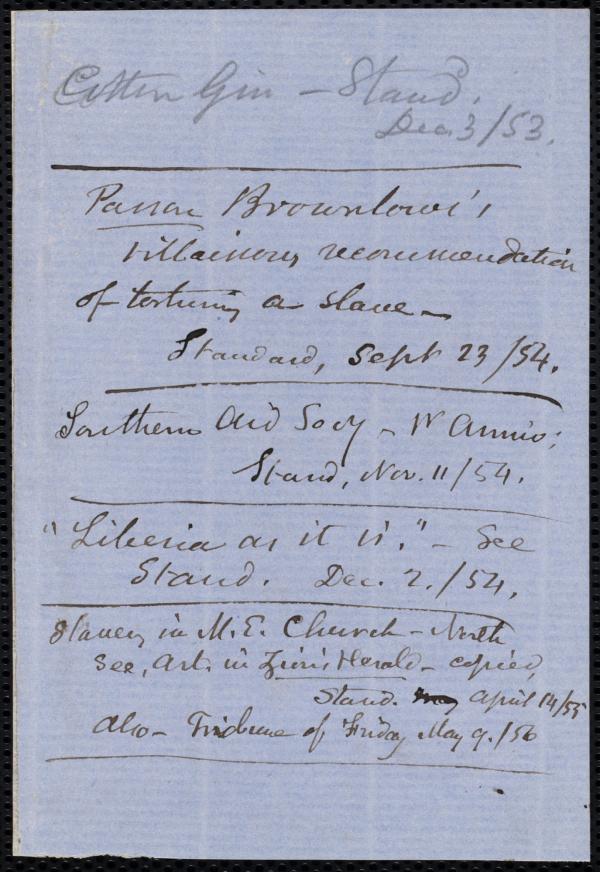 Cotton Gin – Stand.
Dec. 3/53.
Parson Brownlow's
villainous recommendation
of torturing a slave –
Standard, Sept 23/54.
Southern Aid Socy – 1st Anniv:
Stand, Nov. 11/54.
"Liberia as it is." – See
Stand. Dec. 2./54.
Slavery in M.E. Church – North
See, Art. in Zion's Herald – copied,
Stand. April 14/55
Also – Tribune of Friday May 9./56